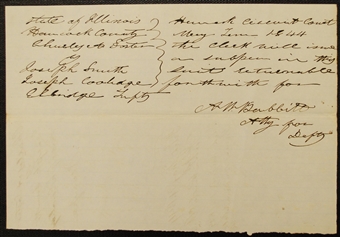 State of Illinois
Hancock County
Charles A Foster
vs
Joseph Smith
Joseph Coolidge
Elbridge Tufts
Hancock Circuit Court
May Term 1844
the Clerk will issue
a subpena in this
suit returnable
forthwith for
A W Babbitt
Atty for
Defts